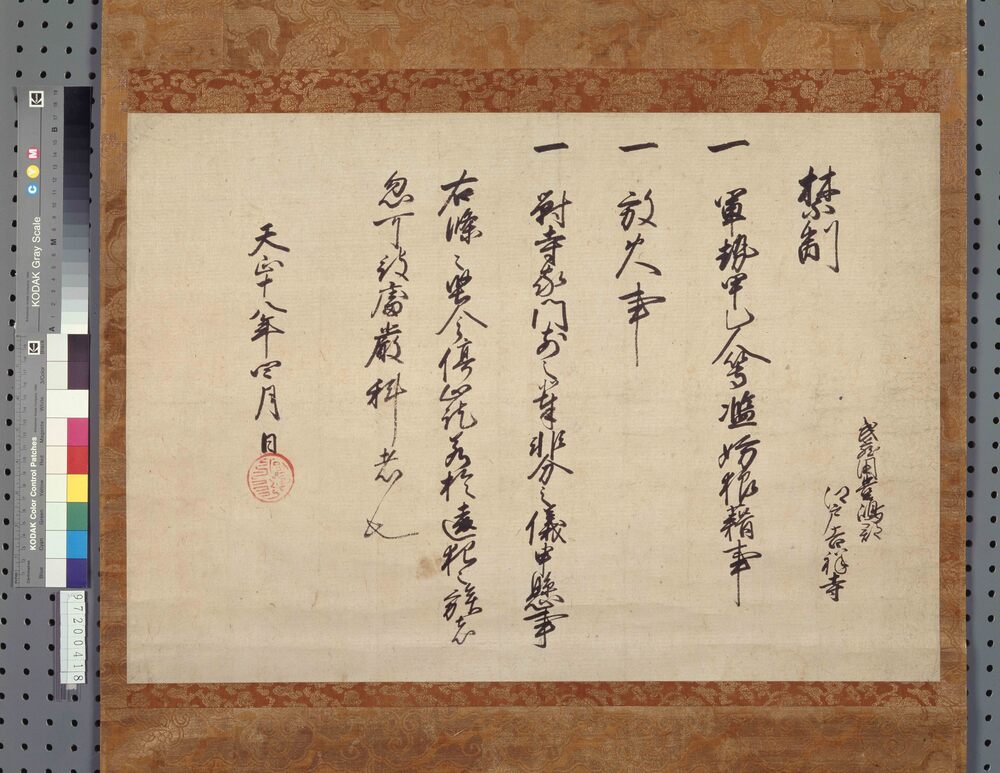 禁制
武蔵国豊嶋郡
江戸吉祥寺
一 軍勢甲乙人等濫妨狼藉事
一 放火事
一 対寺家門前之輩非分之儀申懸事
右條々堅令停止訖若於違犯之族者
忽可被處厳科者也
天正十八年四月 日
KODAK Gray Scale
C Y M
KODAK Color Control Patches
97200418